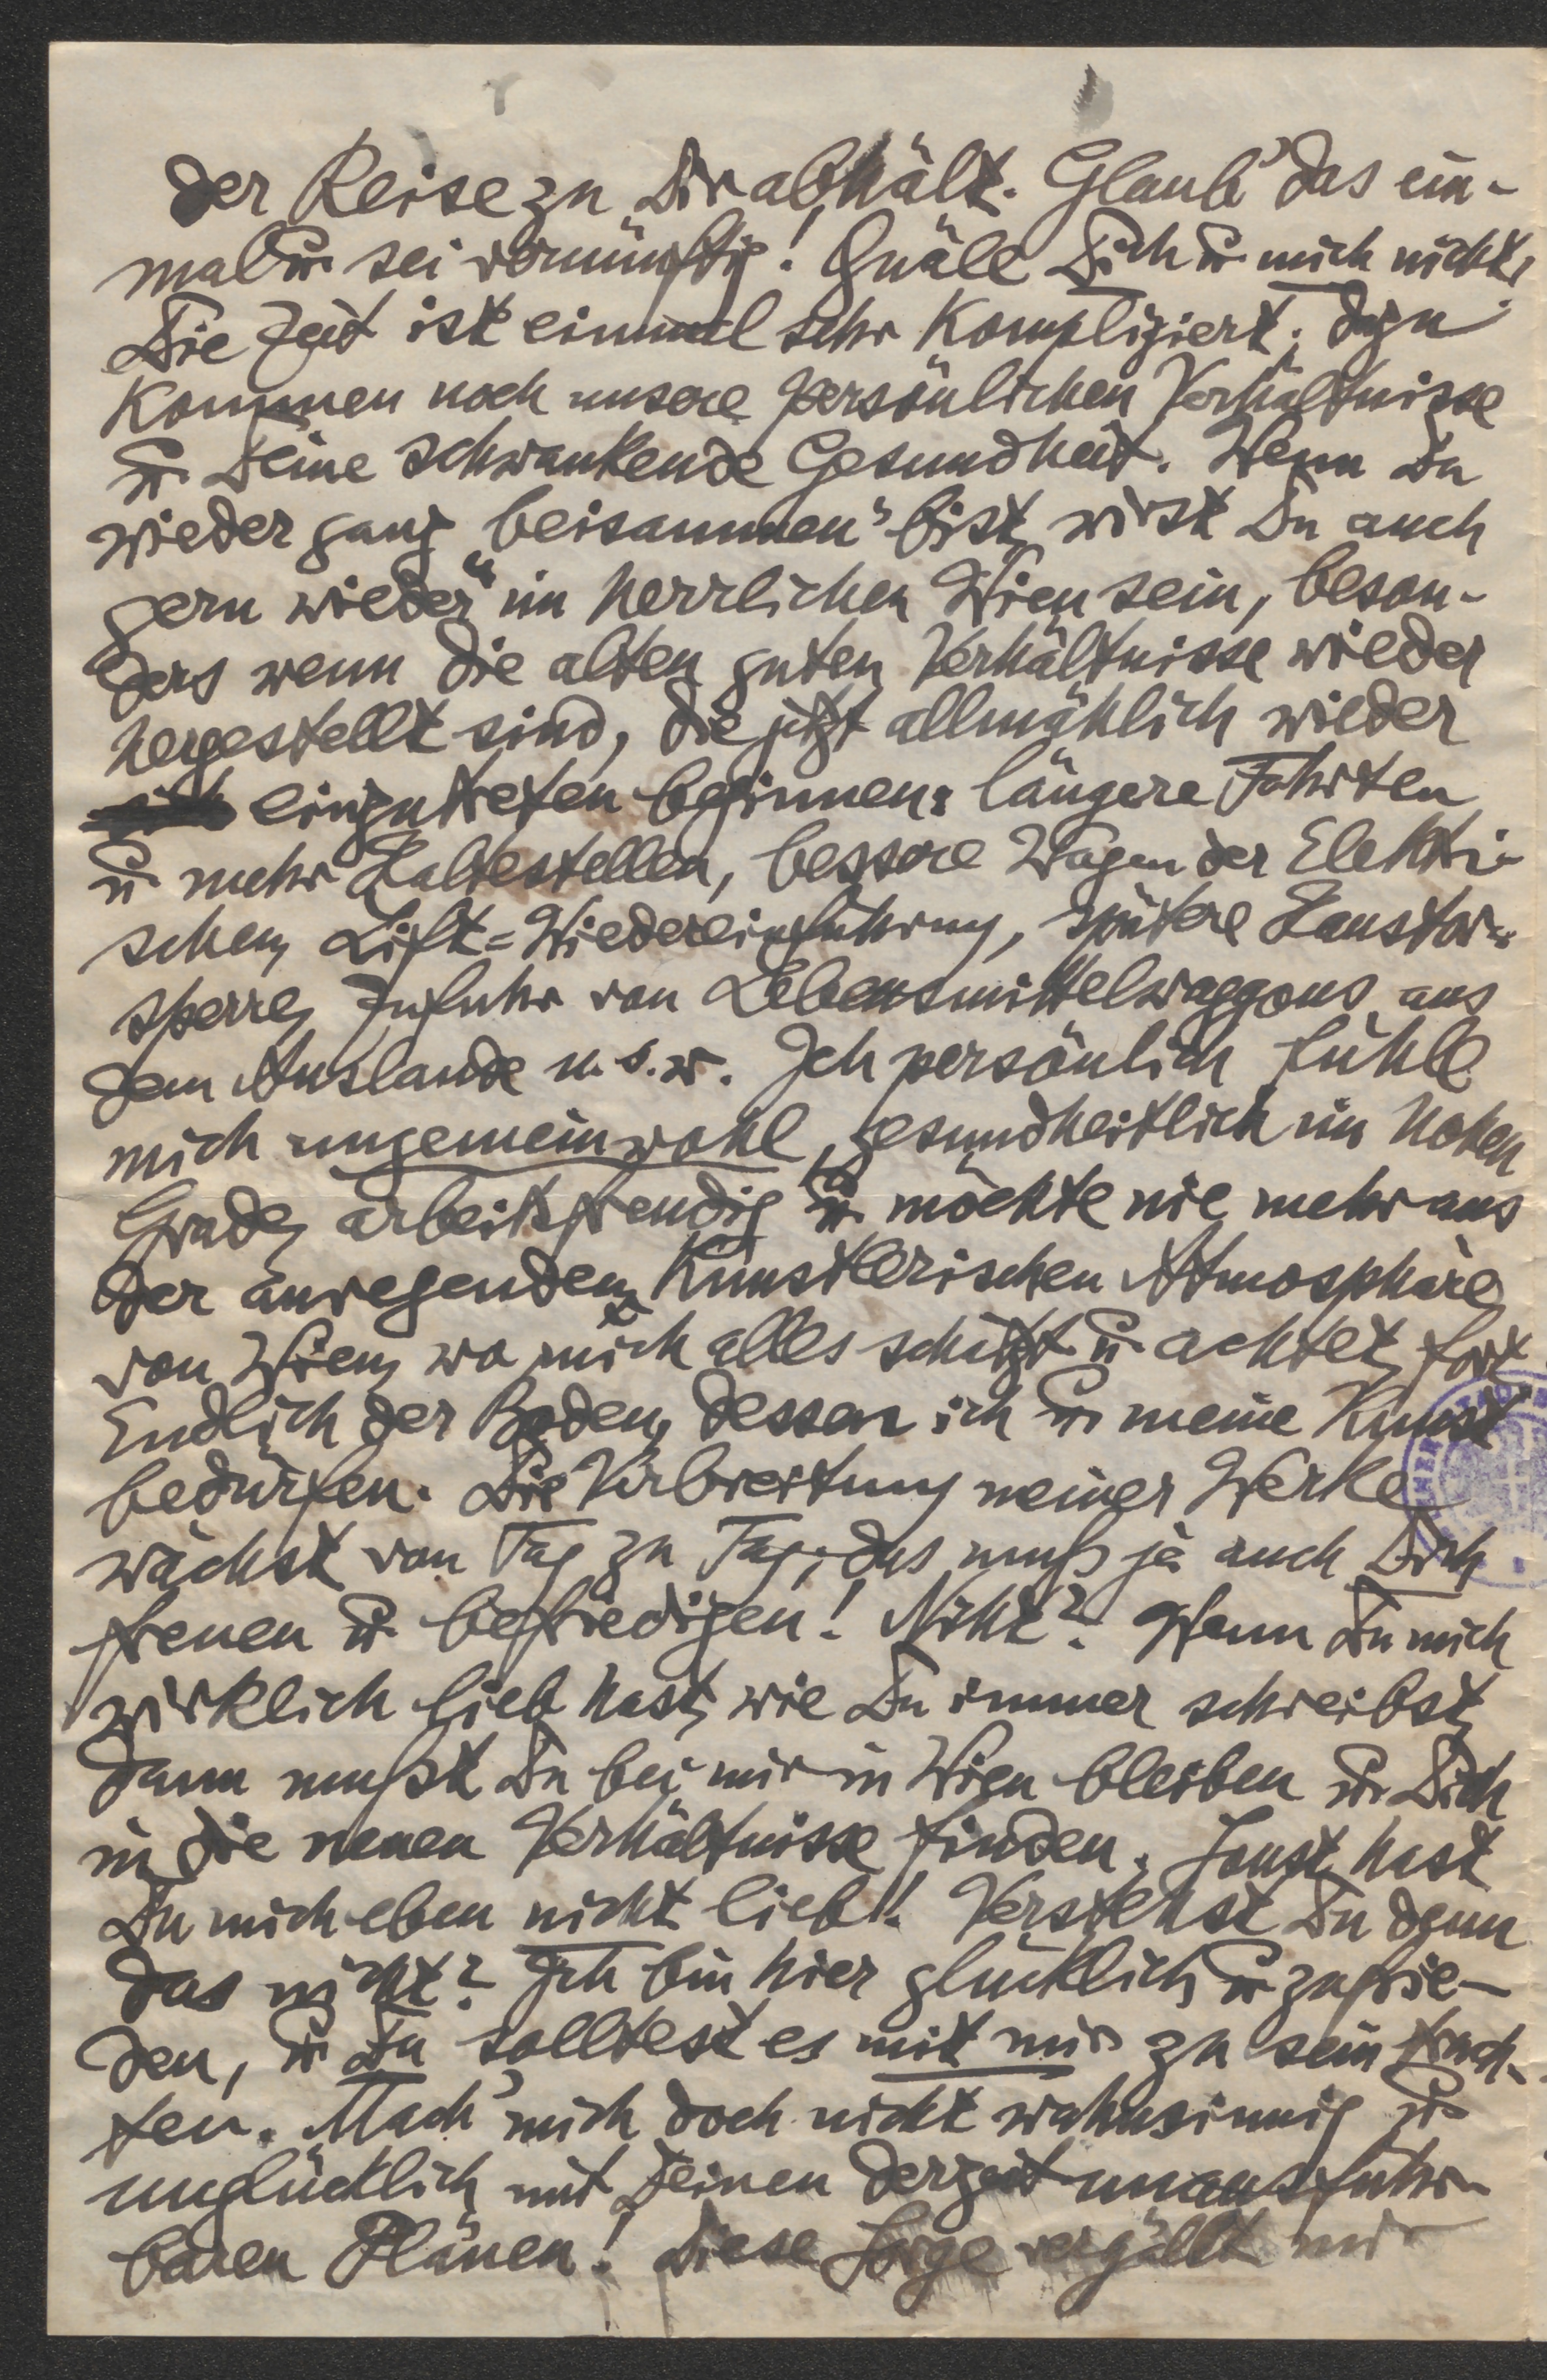 der Reise zu Dir abhält. Glaub' das ein-
mal u. sei vernünftig! Quäle Dich u. mich nicht,
Die Zeit ist einmal sehr kompliziert; dazu
kommen noch unsere persönlichen Verhältnisse
u. Deine schwankende Gesundheit. Wenn Du
wieder ganz „beisammen" bist, wirst Du auch
gern wieder im herrlichen Wien sein, beson-
ders wenn die alten guten Verhältnisse wieder
hergestellt sind, die jetzt allmählich wieder
einzutreten beginnen: längere Fahrten
u. mehr Haltestellen, bessere Wagen der Elektri-
schen, Lift-Wiedereinführung, spätere Haustor-
sperre, Zufuhr von Lebensmittelwaggons aus
dem Auslande u.s.w. Ich persönlich fühle
mich ungemein wohl, gesundheitlich im hohen
Grade, arbeitsfreudig u. möchte nie mehr aus
der anregenden, künstlerischen Atmosphäre
von Wien, wo mich alles schätzt u. achtet, fort
Endlich der Boden, dessen ich u. meine Kunst
bedürfen. Die Verbreitung meiner Werke
wächst von Tag zu Tag; das muß ja auch Dich
freuen u. befriedigen! Nicht? Wenn Du mich
wirklich lieb hast, wie Du immer schreibst,
dann mußt Du bei mir in Wien bleiben u. Dich
in die neuen Verhältnisse finden. Sonst hast
Du mich eben nicht lieb!! Verstehst Du denn
das nicht? Ich bin hier glücklich u. zufrie-
den, u. Du solltest es mit mir zu sein trach-
ten. Mach' mich doch nicht wahnsinnig u.
unglücklich mit Deinen derzeit unausführ-
baren Plänen! Diese Sorge vergällt mir